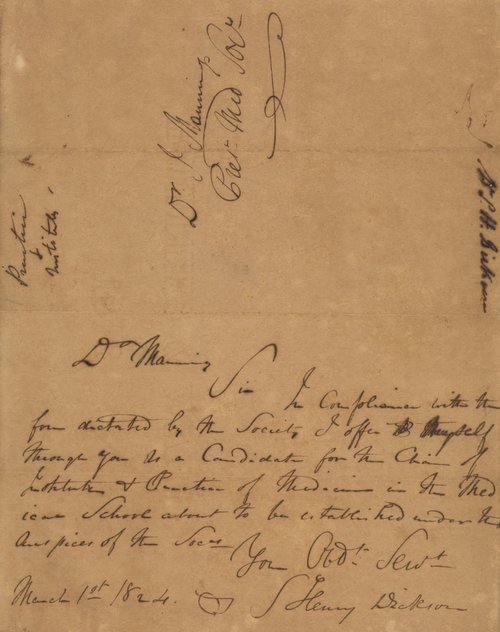 Dr. J. Manning
Pres. Med Socy.
Practice
&
Institutes
Dr. S. H. Dickson
Dr Manning
Sir In Compliance with the
form dictated by the Society I offer myself
through you as a Candidate for the Chair of
Institutes & Practice of Medicine in the Med
ical School about to be established under the
Auspices of the Socy.
Your Obdt. Servt.
March 1st. 1824. S Henry Dickson